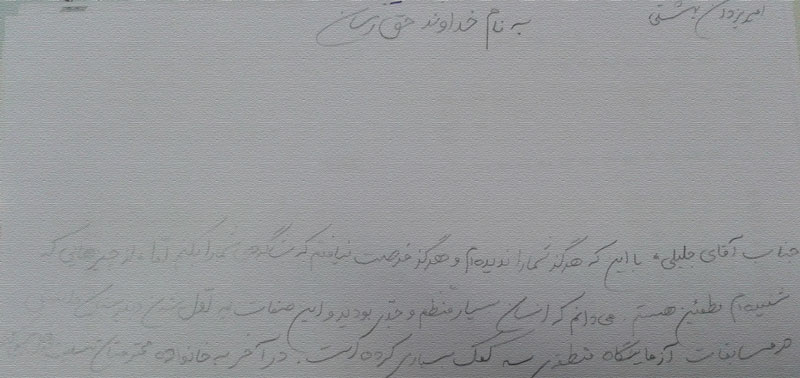 امیر یزدان بهشتی
به نام خداوند حق رسان
جناب آقای جلیلی، با این که هرگز شمارا ندیده‌ام و هرگز فرصت نیافتم که شاگردی شمارا بکنم اما از چیزهایی که
شنیده‌ام مطمئن هستم می‌دانم که انسان بسیار منظم و جدی بودید و این صفات به قول
در مسابقات آزمایشگاه منطقه‌ای به کمک بسیاری کرده است. در آخر به خانواده محترمتان تسلیت